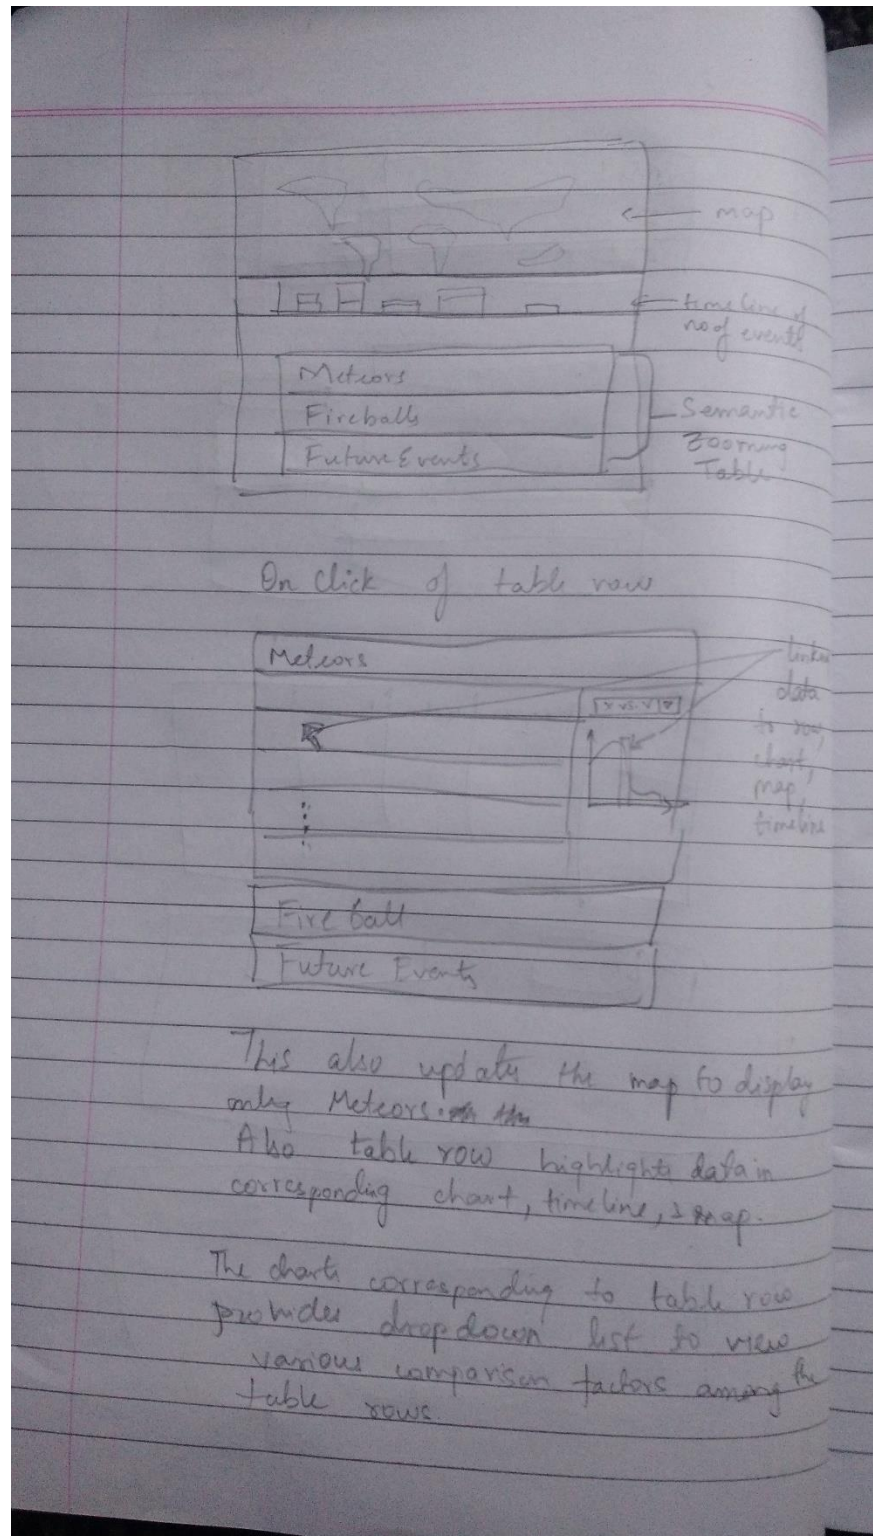 map
timeline of
no of events
Meteors
Fireballs
Future Events
Semantic
Zooming
Table
On Click of table row
Meteors
linked
data
to row,
chart,
map,
timeline
X vs. Y
Fire ball
Future Events
This also updates the map to display
only Meteors.
Also table row highlights data in
corresponding chart, timeline, & map.
The charts corresponding to table row
provides dropdown list to view
various comparison factors among the
table rows.